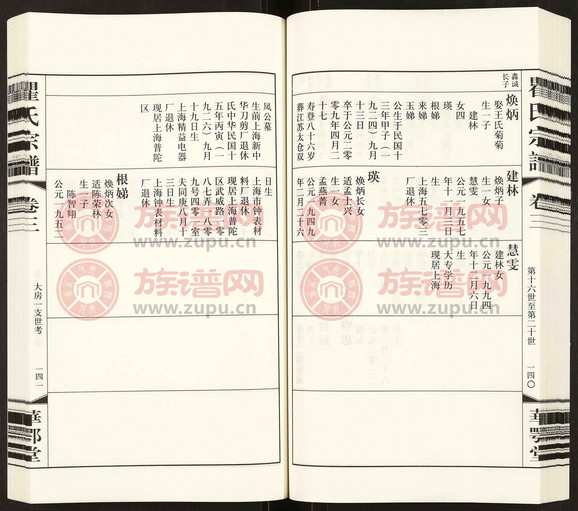 瞿氏宗譜 卷三
第十六世至第二十世
一四〇
華鄂堂
鑫诚
长子
焕炳
娶王氏菊菊
生一子
建林
女四
瑛
根娣
来娣
玉娣
公生于民国十
三年甲子（一
九二四）九月
十三日
卒于公元二零
零九年四月二
十七
寿登八十六岁
葬江苏太仓双
凤公墓
生前上海新中
华刀剪厂退休
氏中华民国十
五年丙寅（一
九二六）九月
十九日生
上海精益电器
厂退休
现居上海普陀
区
建林
焕炳子
生一女
慧雯
公元一九五七
年十一月三日
生
上海五七零三
厂退休
瑛
焕炳长女
适孟士兴
生一女
孟燕菁
公元一九四九
年二月二十六
日生
上海市钟表材
料厂退休
现居上海普陀
区武威路二零
八七弄一八零
九九四零一室
夫阴庚八月十
三日生
上海钟表材料
厂退休
根娣
焕炳次女
适陈荣林
生一子
陈智翔
公元一九五二
慧雯
建林女
公元一九九四
年十二月六日
生
大专学历
现居上海
瞿氏宗譜 卷三
大房一支世考
一四一
華鄂堂
族谱网
www.zupu.cn
族谱网
www.zupu.cn
族谱网
www.zupu.cn
族谱网
www.zupu.cn